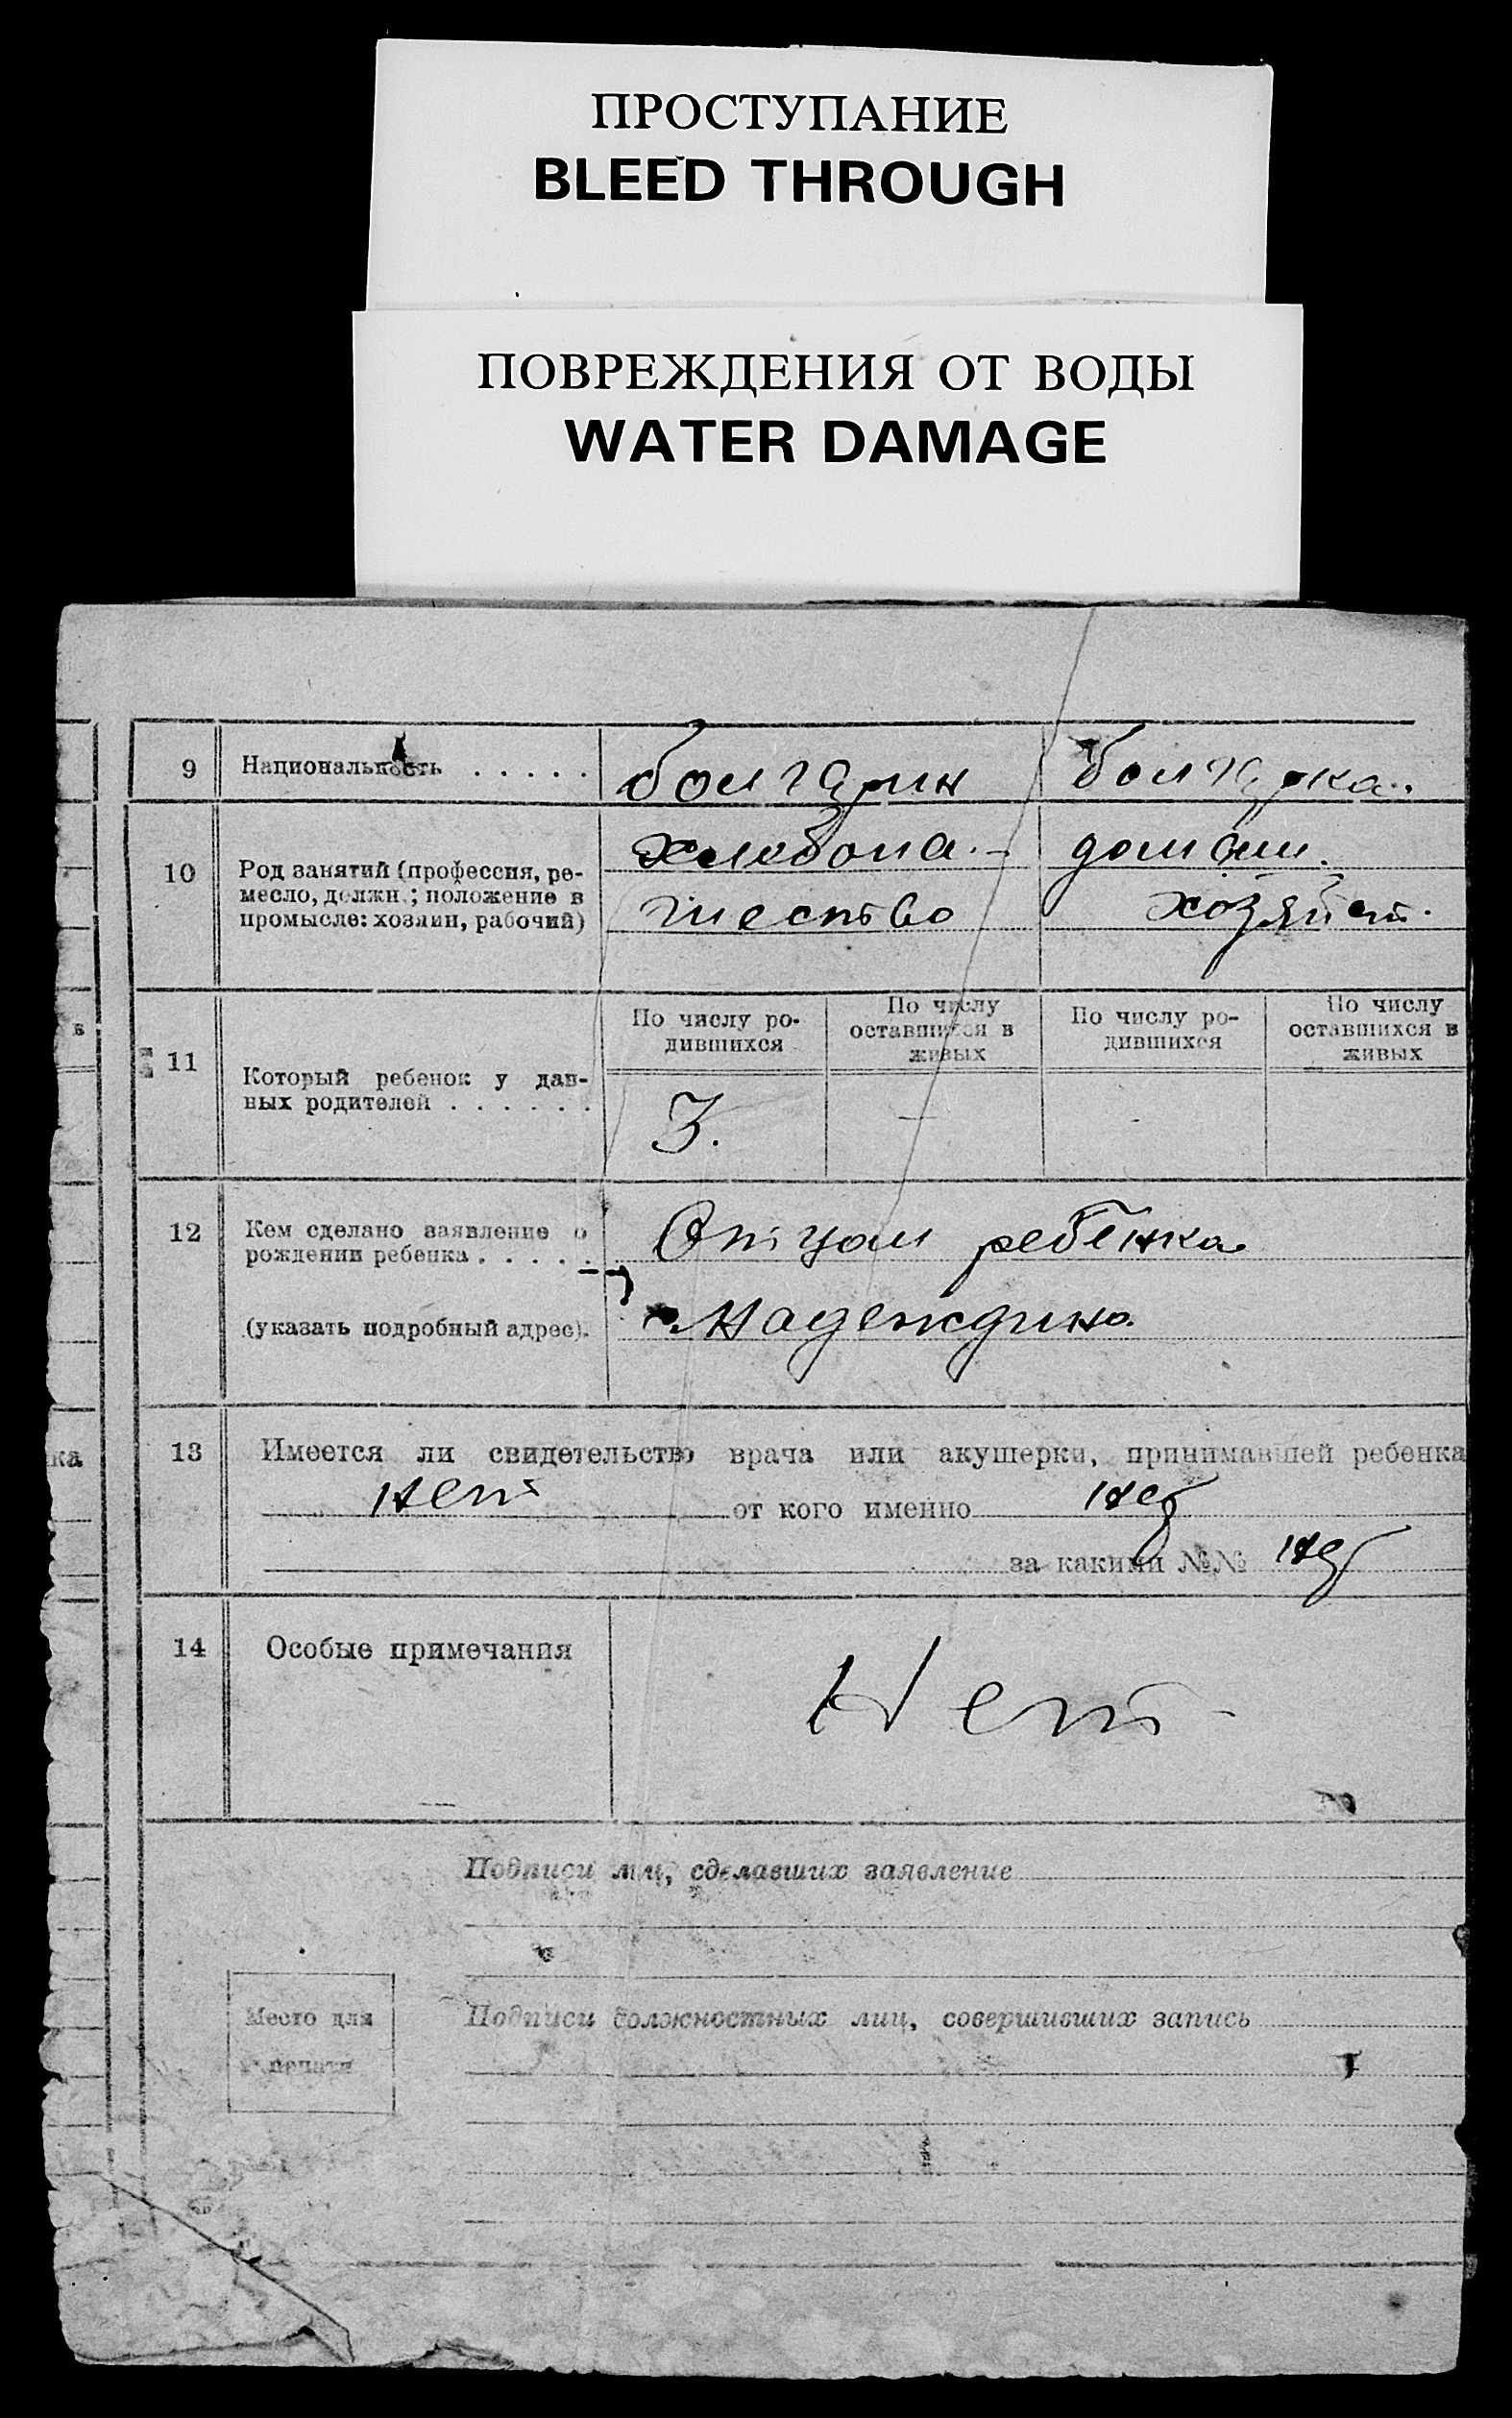 ПРОСТУПАНИЕ
BLEED THROUGH
ПОВРЕЖДЕНИЯ ОТ ВОДЫ
WATER DAMAGE
9 Национальность . . . . . болгарин болгарка.
10 Род занятий (профессия, ре-
месло, должн.; положение в
промысле: хозяин, рабочий)
хлебопа-
шество
домашн.
хозяйст.
11 Который ребенок у дан-
ных родителей . . . . . .
По числу ро-
дившихся
По числу
оставшихся в
живых
По числу ро-
дившихся
По числу
оставшихся в
живых
3. —
-
12 Кем сделано заявление о
рождении ребенка . . . . .
(указать подробный адрес).
Отцом ребенка
Надеждино.
13 Имеется ли свидетельство врача или акушерки, принимавшей ребенка
нет от кого именно нет
за какими №№ нет
14 Особые примечания Нет
Подписи лиц, сделавших заявление
Место для
печати
Подписи должностных лиц, совершивших запись
в
ка